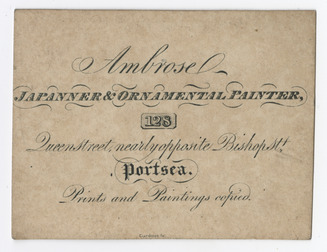 Ambrose
JAPANNER & ORNAMENTAL PAINTER,
128
Queenstreet, nearly opposite Bishop St.
Portsea.
Prints and Paintings copied.